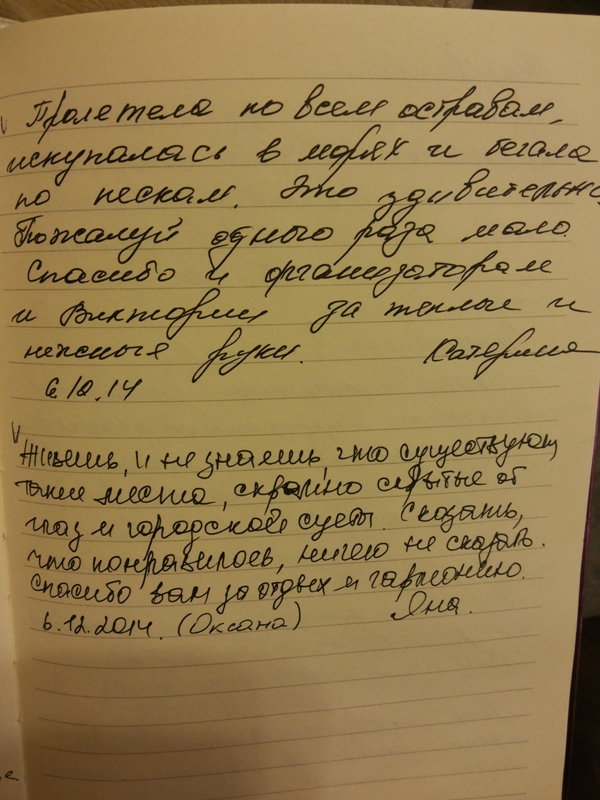 Пролетела по всем островам,
искупалась в морях и бегала
по пескам. Это удивительно
Пожалуй одного раза мало.
Спасибо и организаторам
и Виктории за теплые и
нежные руки. Катерина
6.12.14
Живешь, и не знаешь, что существуют
такие места, скромно скрытые от
глаз и городской суеты. Сказать,
что понравилось, ничего не сказать.
Спасибо вам за отдых и гармонию.
6.12.2014. (Оксана) Яна.